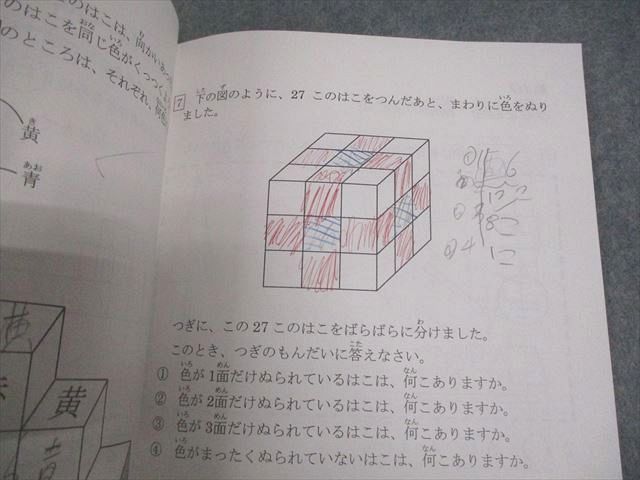 のはこは、向かいあっ
のはこを同じ色がくっつく
のところは、それぞれ、何色
黄
青
7 下の図のように、27 このはこをつんだあと、まわりに色をぬり
ました。
6
12こ
8こ
④ 1こ
つぎに、この 27 このはこをばらばらに分けました。
このとき、つぎのもんだいに答えなさい。
① 色が 1面だけぬられているはこは、何こありますか。
② 色が 2面だけぬられているはこは、何こありますか。
③ 色が 3面だけぬられているはこは、何こありますか。
④ 色がまったくぬられていないはこは、何こありますか。
黄
黄
青